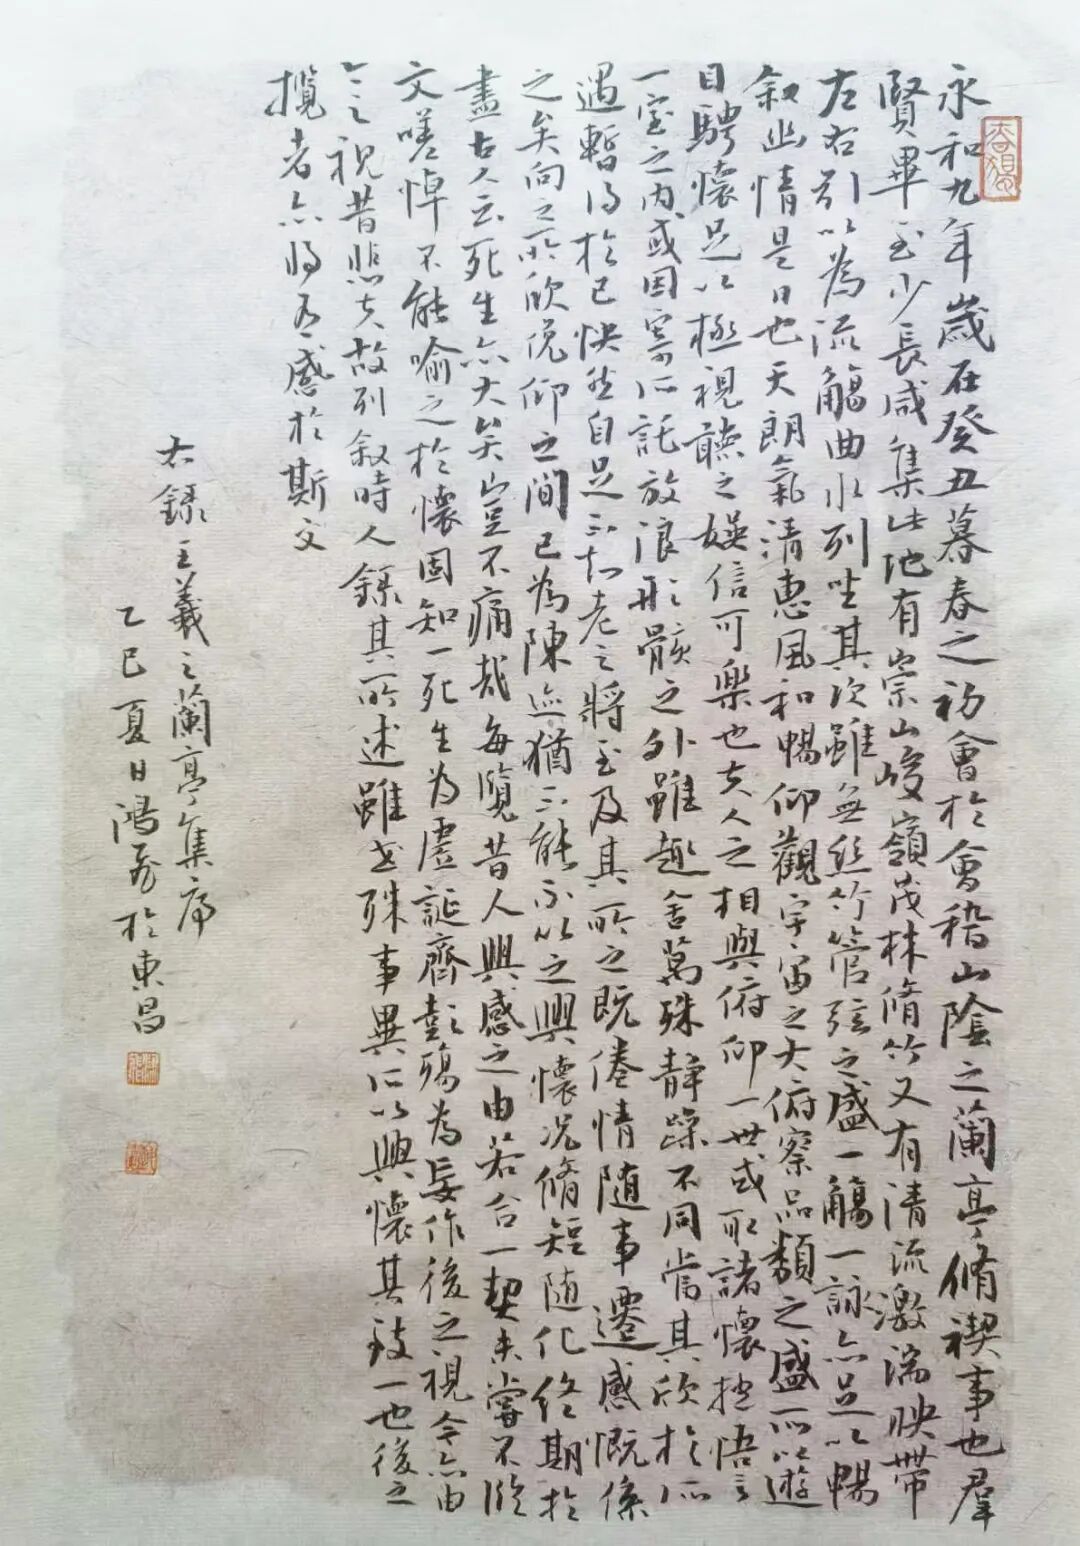 永和九年歲在癸丑暮春之初會於會稽山陰之蘭亭脩禊事也羣
賢畢至少長咸集此地有崇山峻嶺茂林脩竹又有清流激湍映帶
左右引以為流觴曲水列坐其次雖無絲竹管弦之盛一觴一詠亦足以暢
叙幽情是日也天朗氣清惠風和暢仰觀宇宙之大俯察品類之盛所以遊
目騁懷足以極視聽之娛信可樂也夫人之相與俯仰一世或取諸懷抱悟言
一室之內或因寄所託放浪形骸之外雖趣舍萬殊靜躁不同當其欣於所
遇暫得於己快然自足不知老之將至及其所之既倦情随事遷感慨係
之矣向之所欣俛仰之間已為陳迹猶不能不以之興懷況脩短随化終期於
盡古人云死生亦大矣豈不痛哉每覽昔人興感之由若合一契未嘗不臨
文嗟悼不能喻之於懷固知一死生為虛誕齊彭殤為妄作後之視今亦由
今之視昔悲夫故列叙時人錄其所述雖世殊事異所以興懷其致一也後之
攬者亦將有感於斯文
右錄王羲之蘭亭集序
乙巳夏日鴻飛於東昌